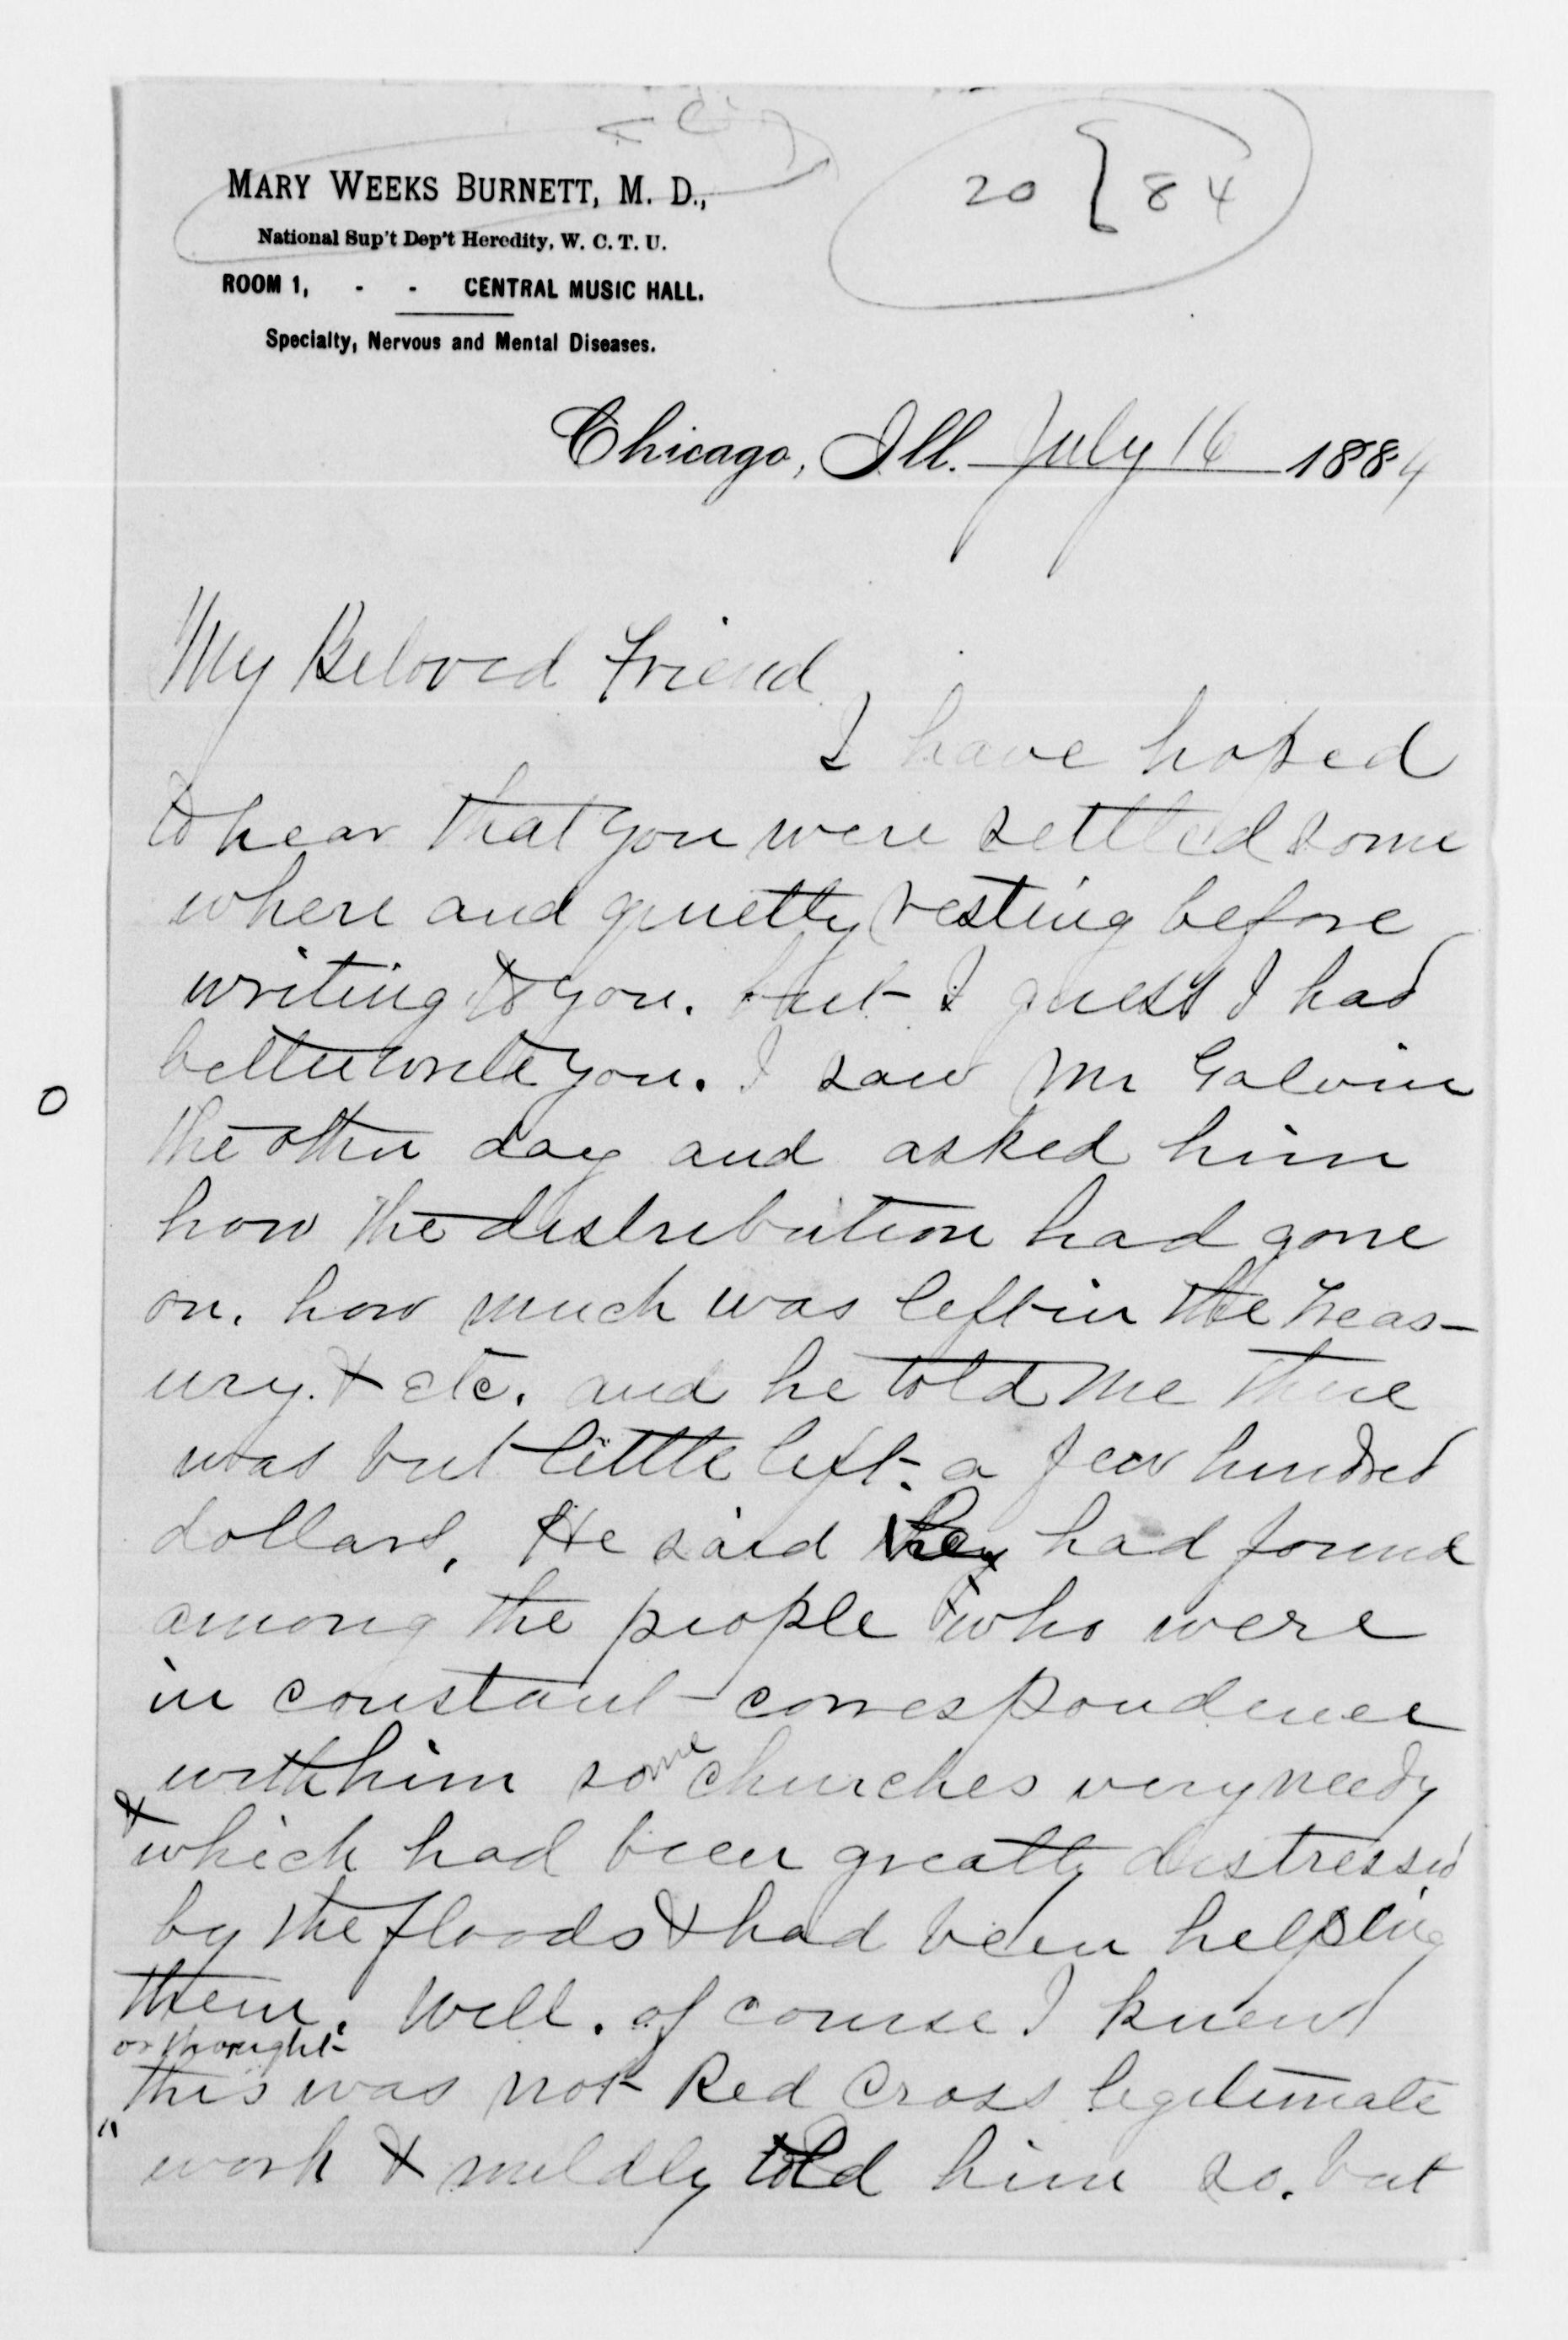 20 [ 84
MARY WEEKS BURNETT, M. D.,
National Sup't Dep't Heredity, W. C. T. U.
ROOM 1, - - CENTRAL MUSIC HALL.
Specialty, Nervous and Mental Diseases.
Chicago, Ill. July 16 1884
My Beloved Friend
I have hoped
to hear that you were settled some
where and quietly resting before
writing to you. but I guess I had
better write you. I saw Mr Galvin
the other day and asked him
how the distribution had gone
on. how much was left in the treas-
ury. & etc. and he told me there
was but little left - a few hundred
dollars. He said they had found
among the people & who were
in constant correspondence
with him some churches very needy
& which had been greatly distressed
by the floods & had been helping
them. Well. of course I knew
or thought
this was not Red Cross legitimate
" work & mildly told him so. but